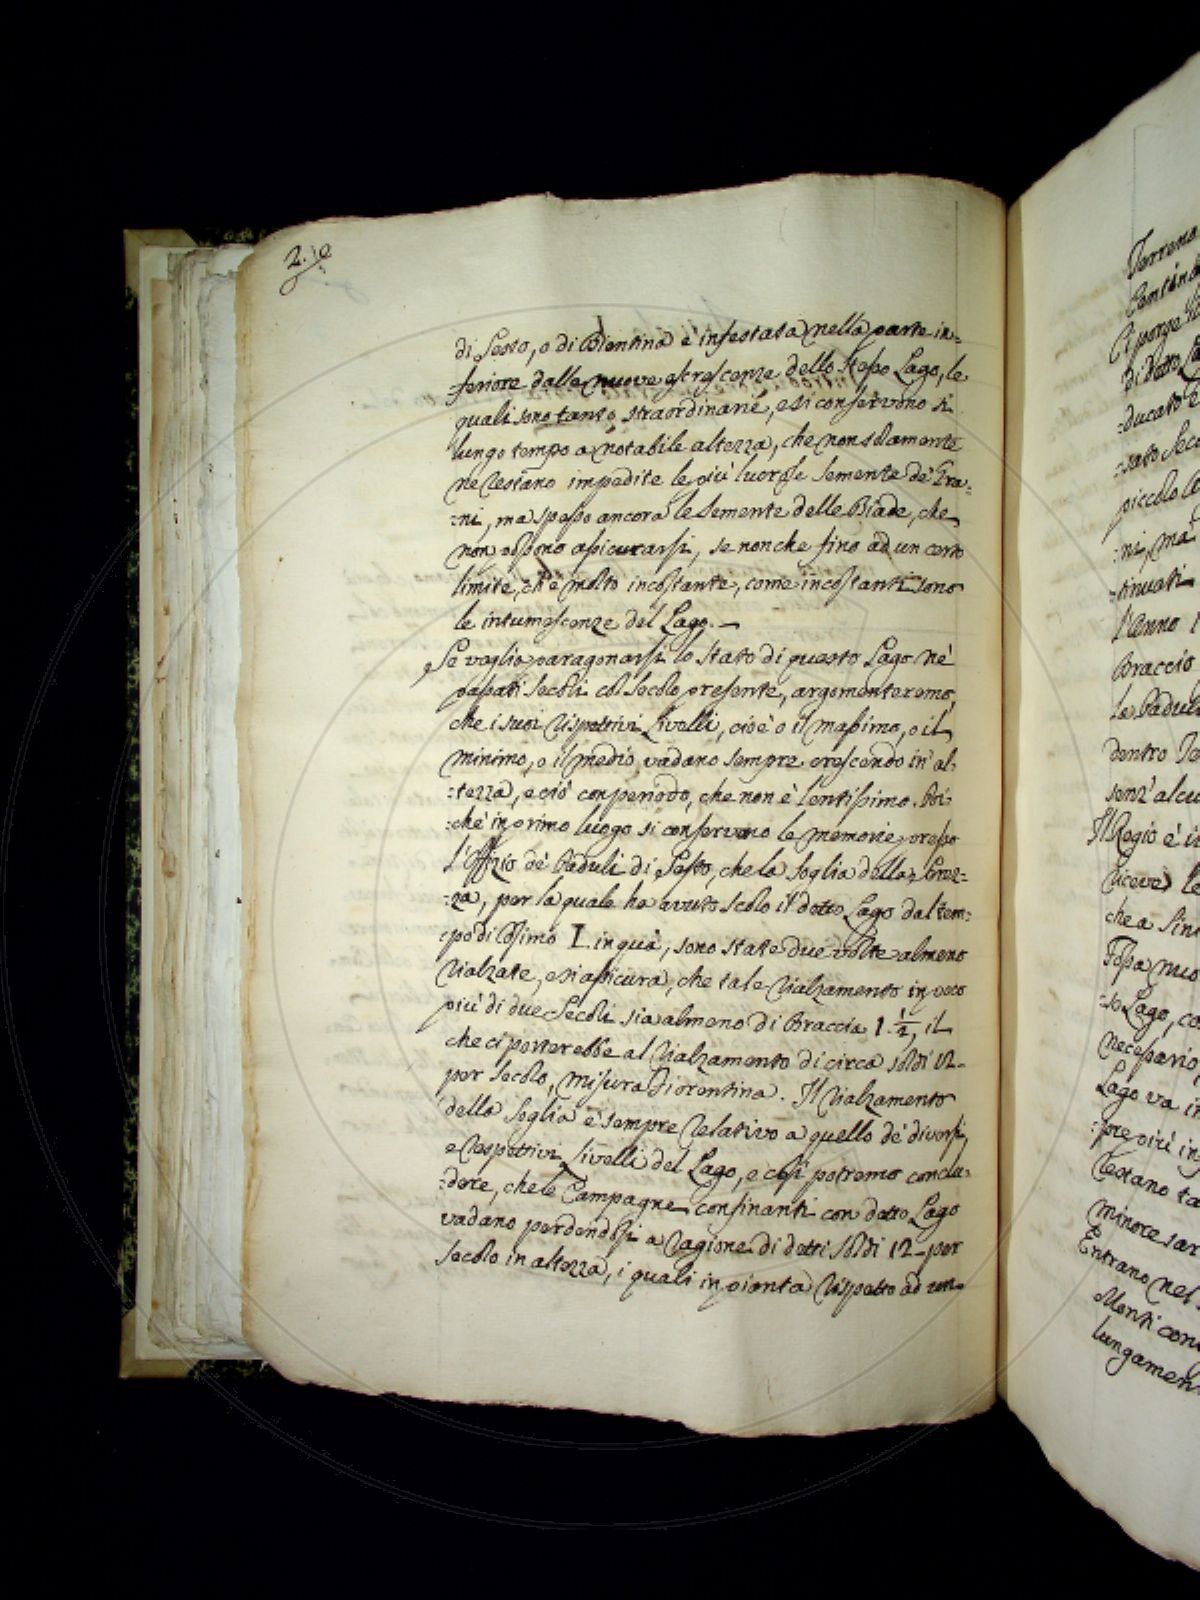 2.o
di Sesto, o di Bientina è infestata nella parte in-
feriore dalle nuove escrescenze dello stesso Lago, le
quali sono tanto straordinarie, e si conservono sì
lungo tempo a notabile altezza, che non solamente
ne restano impedite le più lucrose semente de' Gra-
:ni, ma spesso ancora le semente delle Biade, che
non possono assicurarsi, se non che fino ad un certo
limite, ch'è molto incostante, come incostanti sono
le intumescenze del Lago. —
Se voglia paragonarsi lo stato di questo Lago ne'
passati secoli col secolo presente, argomenteremo,
che i suoi rispettivi Livelli, cioè o il massimo, o il
minimo, o il medio, vadano sempre crescendo in al-
:tezza, e ciò con periodo, che non è lentissimo. Poi-
:chè in primo luogo si conservano le memorie presso
l'Offizio de' Paduli di Sesto, che la soglia della
:za, per la quale ha avuto scolo il detto Lago dal tem:
:po di Cosimo I. in quà, sono state due volte almeno
rialzate, e si assicura, che tale rialzamento in poco
più di due Secoli sia almeno di Braccia 1. 1/2, il
che ci porterebbe al rialzamento di circa soldi 12-
per secolo, misura Fiorentina. Il rialzamento
della soglia è sempre relativo a quello de' diversi,
e respettivi Livelli del Lago, e così potremo conclu-
:dere, che le Campagne confinanti con detto Lago
vadano perdendosi a ragione di detti soldi 12- per
secolo in altezza, i quali in pianta rispetto ad un
Terreno
di detto
:ducato
:sato seco
piccolo
:ni, mà
:tinuati
l'Anno 1
Braccio
le Padul
dentro
senz'alcu
Il Regio è
riceve le
che a
Fossa nuo
:so Lago, co
necessario,
Lago va in
:pre più in
restano ta
minore sar
Entrano nel
Monti con
lungamen